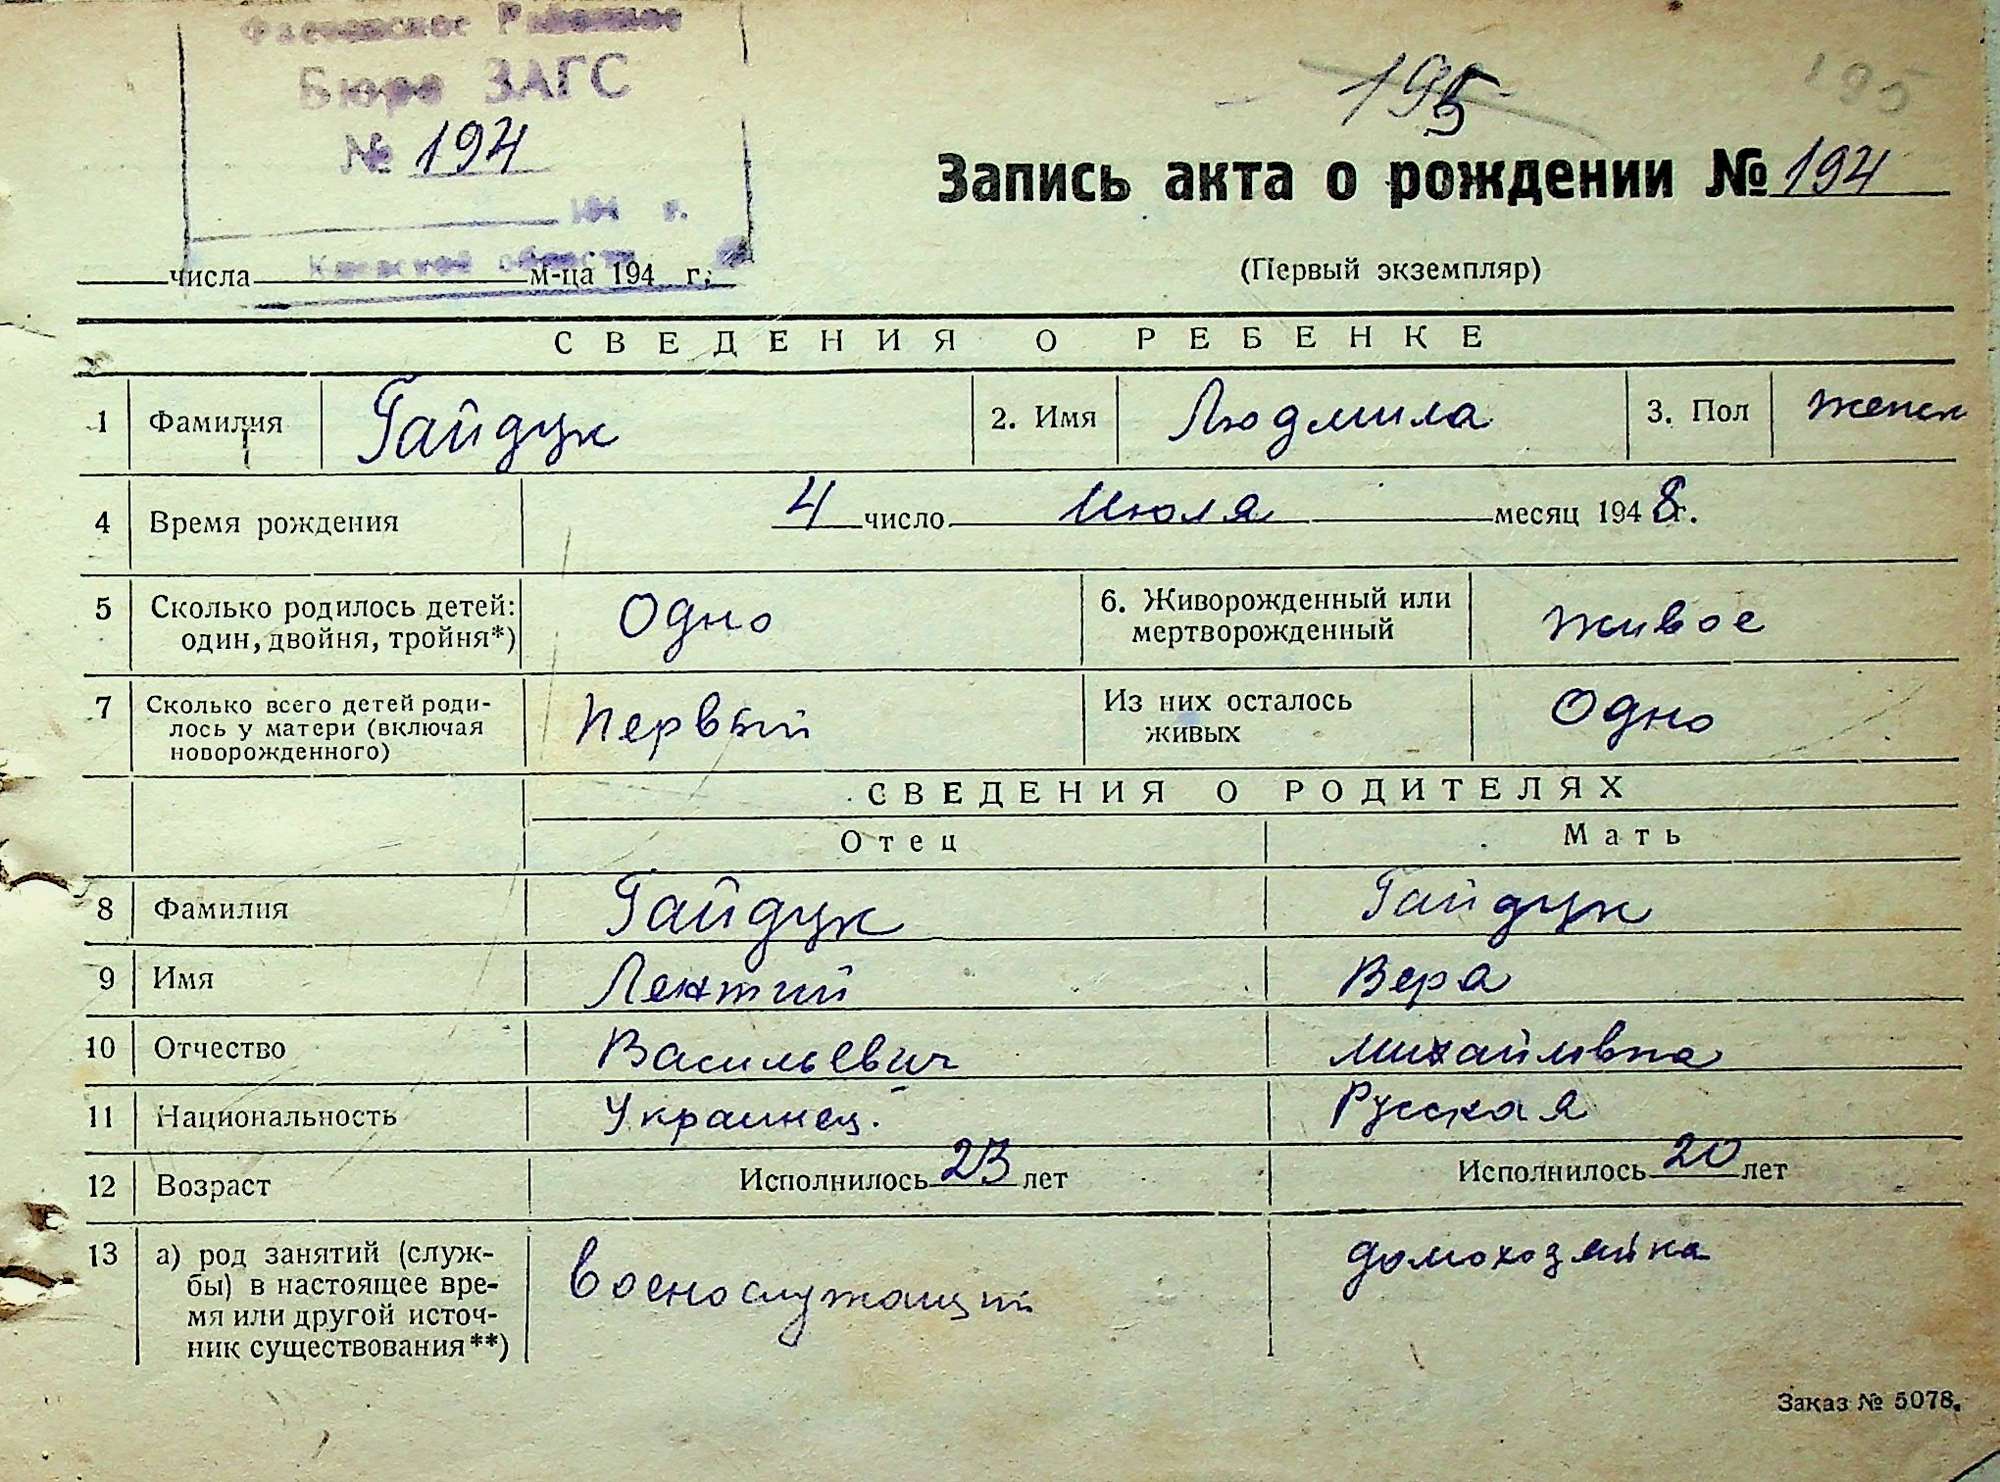 Фастовское Районное
Бюро ЗАГС
№ 194
194 г.
Киевской области
195
195
Запись акта о рождении № 194
(Первый экземпляр)
числа м-ца 194 г.
СВЕДЕНИЯ О РЕБЕНКЕ
1 Фамилия Гайдук 2. Имя Людмила 3. Пол женск
4 Время рождения 4 число Июля месяц 1948 г.
5 Сколько родилось детей: один, двойня, тройня*) Одно 6. Живорожденный или мертворожденный живое
7 Сколько всего детей роди-
лось у матери (включая
новорожденного) Первый Из них осталось живых Одно
СВЕДЕНИЯ О РОДИТЕЛЯХ
Отец Мать
8 Фамилия Гайдук Гайдук
9 Имя Лентий Вера
10 Отчество Васильевич Михайловна
11 Национальность Украинец. Русская
12 Возраст Исполнилось 23 лет Исполнилось 20 лет
13 а) род занятий (служ-
бы) в настоящее вре-
мя или другой источ-
ник существования**) Военослужащий домохозяйка
Заказ № 5078.